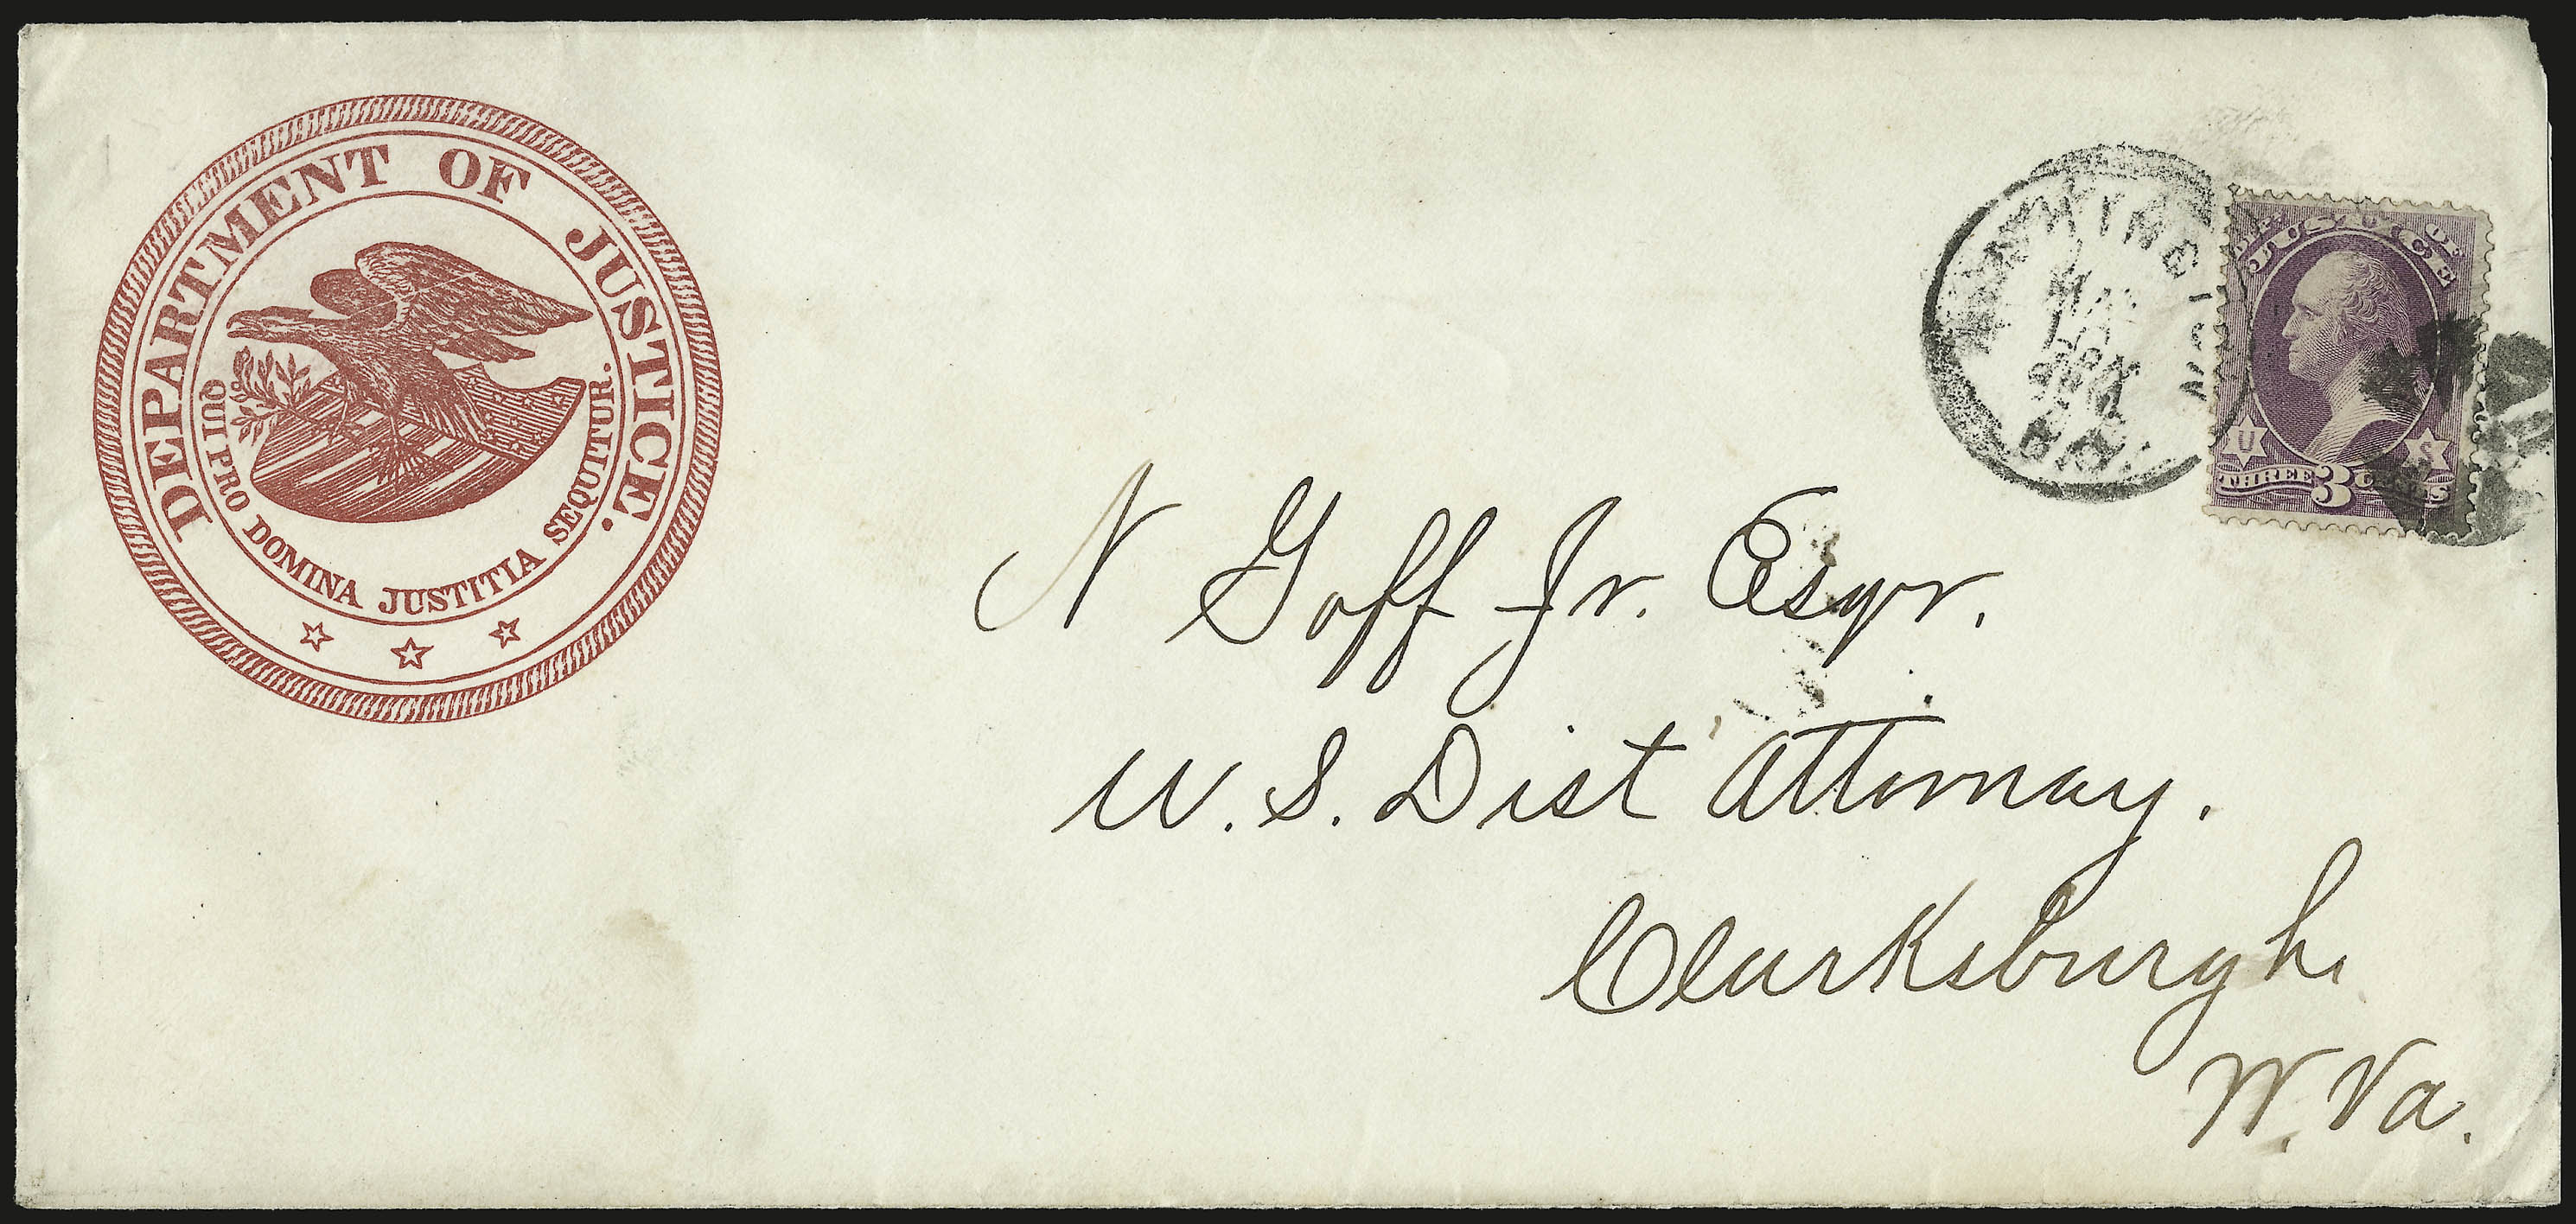 DEPARTMENT OF JUSTICE.
QUI PRO DOMINA JUSTITIA SEQUITUR.
WASHINGTON
D.C.
DEPT. OF
JUSTICE
U S
THREE 3 CENTS
N Goff Jr. Esqr.
U. S. Dist Attorney.
Clarksburgh
W. Va.